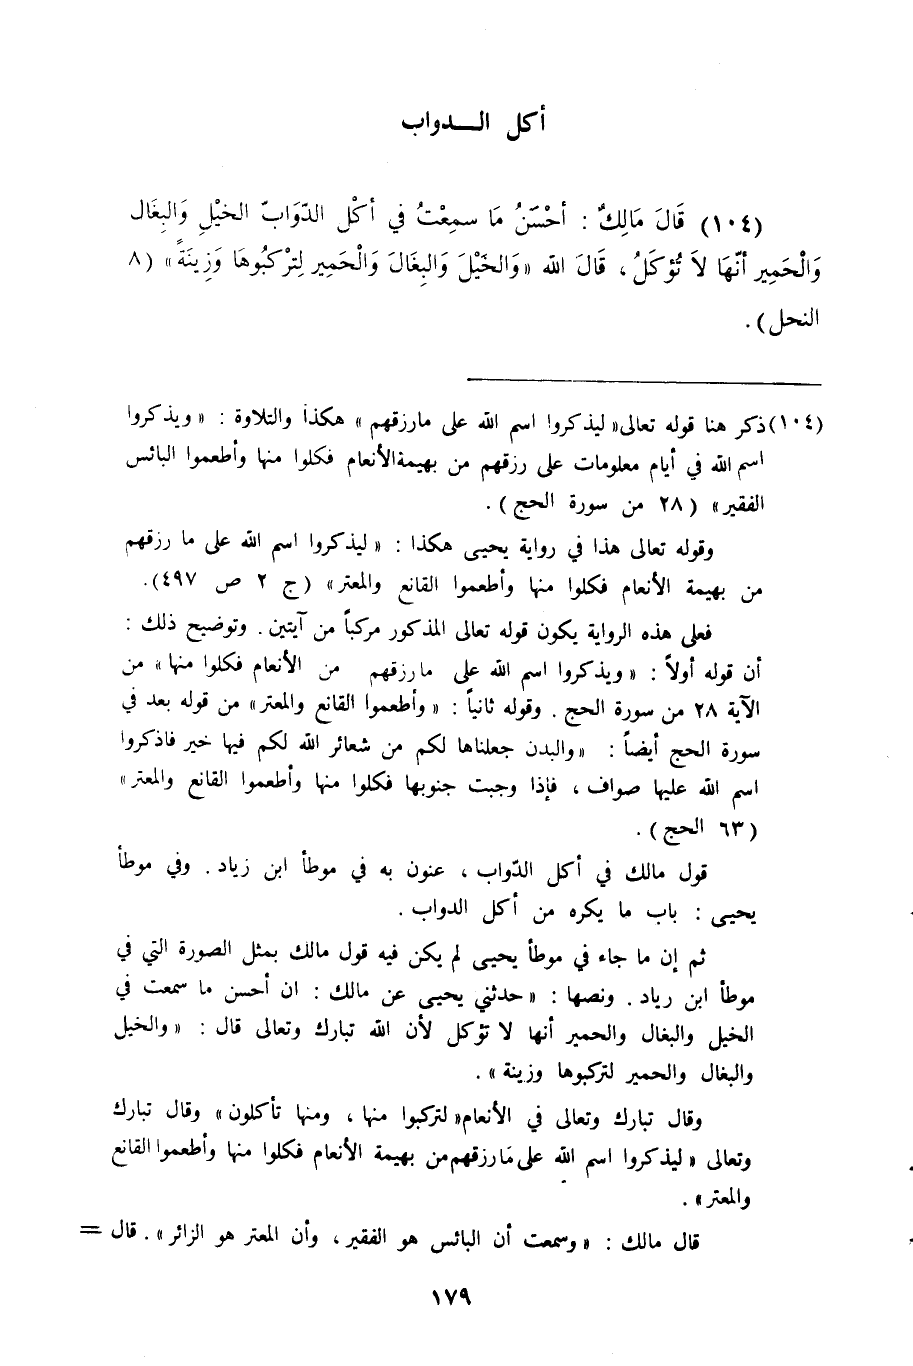 أكل الــدواب
(١٠٤) قَالَ مَالِكٌ : أحْسَنُ مَا سمِعْتُ في أكْل الدّوَابّ الخيْلِ وَالبِغَال
وَالْحَمِير أنّهَا لاَ تُؤكَلُ ، قَالَ الله «وَالخَيْلَ وَالبِغَالَ وَالْحَمِير لِتَرْكبُوهَا وَزِينَةً» (٨
النحل) .
(١٠٤)ذكر هنا قوله تعالى« ليذكروا اسم الله على مارزقهم » هكذا والتلاوة : « ويذكروا
اسم الله في أيام معلومات على رزقهم من بهيمةالأنعام فكلوا منها وأطعموا البائس
الفقير» (٢٨ من سورة الحج ) .
وقوله تعالى هذا في رواية يحيى هكذا : « ليذكروا اسم الله على ما رزقهم
من بهيمة الأنعام فكلوا منها وأطعموا القانع والمعتر» (ج ٢ ص ٤٩٧).
فعلى هذه الرواية يكون قوله تعالى المذكور مركباً من آيتين . وتوضيح ذلك :
أن قوله أولاً : « ويذكروا اسم الله على مارزقهم من الأنعام فكلوا منها» من
الآية ٢٨ من سورة الحج . وقوله ثانياً : « وأطعموا القانع والمعتر» من قوله بعد في
سورة الحج أيضاً : «والبدن جعلناها لكم من شعائر الله لكم فيها خير فاذكروا
اسم الله عليها صواف ، فإذا وجبت جنوبها فكلوا منها وأطعموا القانع والمعتر»
(٦٣ الحج) .
قول مالك في أكل الدّواب ، عنون به في موطأ ابن زياد . وفي موطأ
يحيى : باب ما يكره من أكل الدواب .
ثم إن ما جاء في موطأ يحيى لم يكن فيه قول مالك بمثل الصورة التي في
موطأ ابن رياد . ونصها : « حدثني يحيى عن مالك : ان أحسن ما سمعت في
الخيل والبغال والحمير أنها لا تؤكل لأن الله تبارك وتعالى قال : « والخيل
والبغال والحمير لتركبوها وزينة » .
وقال تبارك وتعالى في الأنعام« لتركبوا منها ، ومنها تأكلون» وقال تبارك
وتعالى « ليذكروا اسم الله على مَارزقهم من بهيمة الأنعام فكلوا منها وأطعموا القانع
والمعتر» .
قال مالك : « وسمعت أن البائس هو الفقير ، وأن المعتر هو الزائر» . قال =
١٧٩